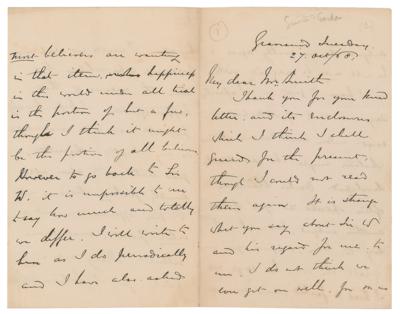 most believers are wanting
in that item,
happiness
in this world under all trial
is the portion of but a few,
though I think it might
be the portion of all believers
However to go back to Sir
W. it is impossible to me
to say how much and totally
we differ. I will write to
him as I do periodically
and I have also asked
Gravesend Tuesday
27 Oct/68
My dear Mrs Smith
Thank you for your kind
letter, and its enclosures
which I think I shall
for the present,
though I could not read
them again. It is strange
what you say about Sir W
and his regard for me, to
me. I do not think we
ever get on well, for on us